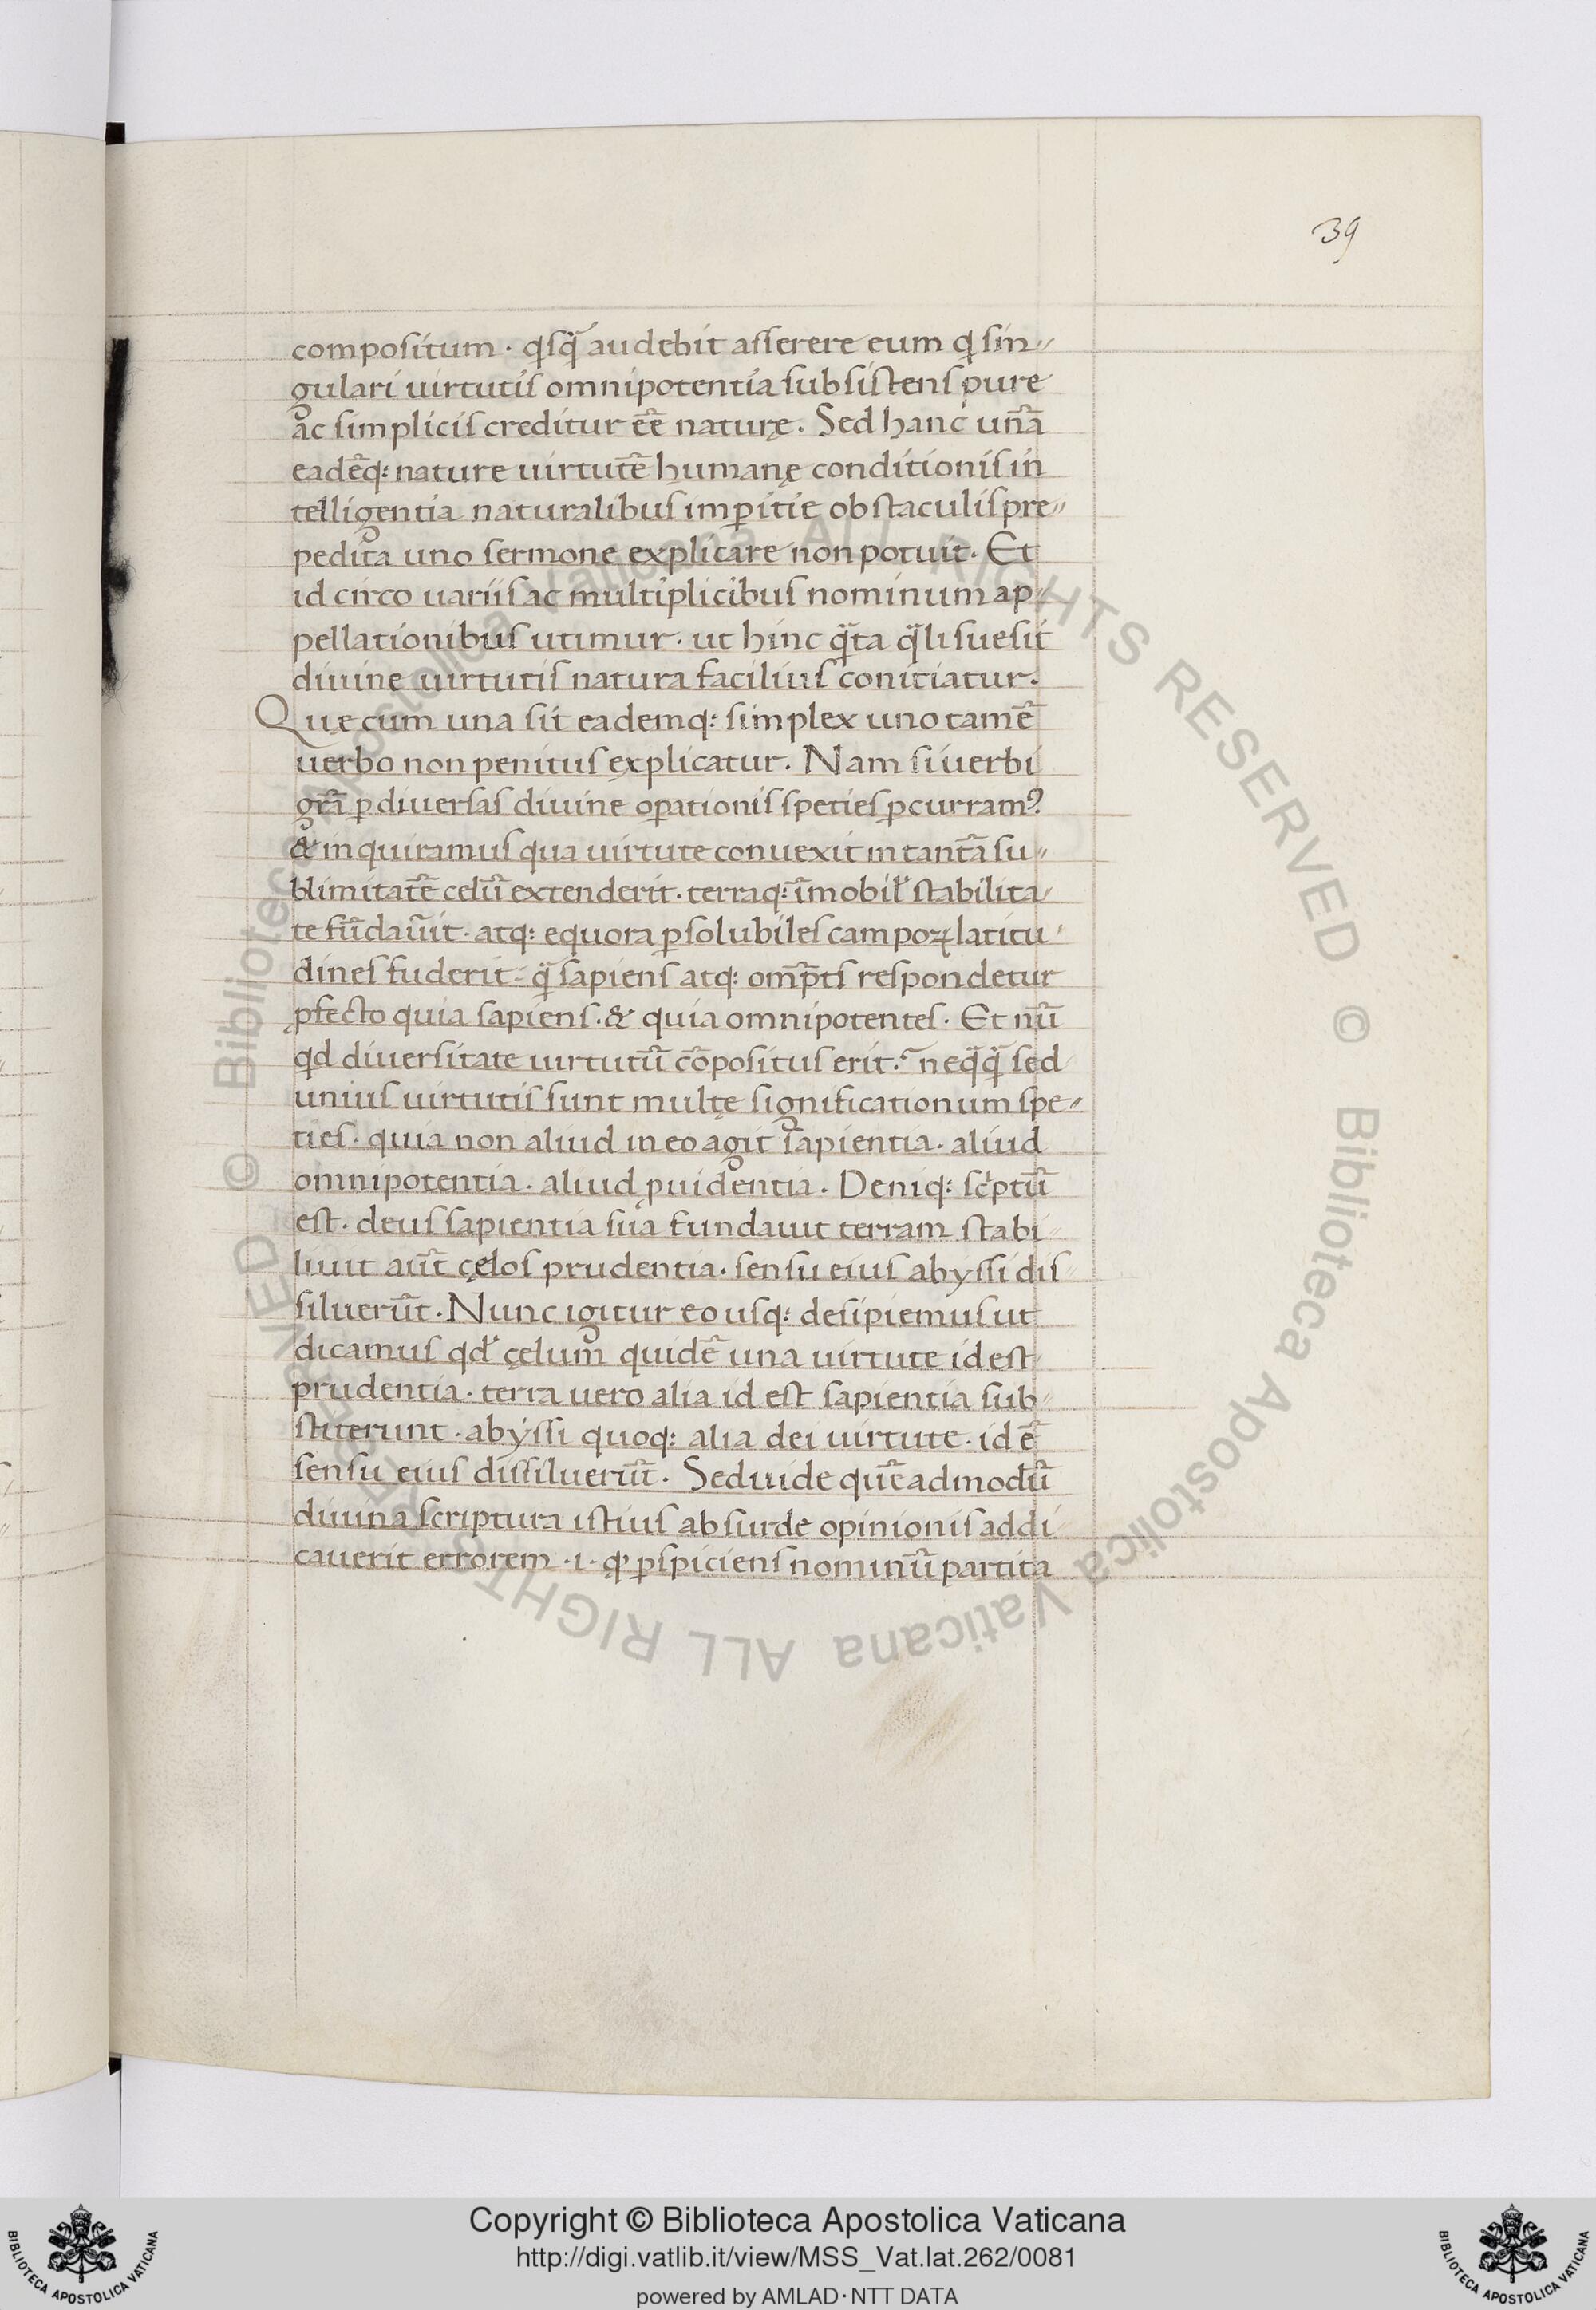 39
compositum · qͥsq̃ audebit asserere eum qͥ sin〃
gulari uirtutis omnipotentia subsistens pure
ac simplicis creditur eẽ naturę. Sed hanc unã
eadẽq: nature uirtutẽ humanę conditionis in
telligentia naturalibus imꝑitie obstaculis pre〃
pedita uno sermone explicare non potuit. Et
id circo uariis ac multiplicibus nominum ap〃
pellationibus utimur · ut hinc qͣ̃ta qͣ̃lisue sit
diuine uirtutis natura facilius coniciatur.
Quę cum una sit eademq: simplex uno tamẽ
uerbo non penitus explicatur. Nam si uerbi
grã ꝑ diuersas diuine oꝑationis speties ꝑcurram?
& inquiramus qua uirtute conuexit in tantã su〃
blimitatẽ celũ extenderit · terraq: ĩmobil' stabilita
te fũdauit · atq: equora ꝑsolubiles campoꝝ latitu
dines fuderit · qͣ̃ sapiens atq: omp̃ts respondetur
ꝓfecto quia sapiens · & quia omnipotentes · Et nũ
qd diuersitate uirtutũ cõpositus erit? neqͣ̃qͣ̃ sed
unius uirtutis sunt multę significationum spe〃
ties · quia non aliud in eo agit sapientia · aliud
omnipotentia · aliud ꝓuidentia. Deniq: scͥptũ
est · deus sapientia sua fundauit terram stabi
liuit aũt cęlos prudentia · sensu eius abyssi dis
siluerũt · Nunc igitur eo usq: desipiemus ut
dicamus qd' cęlum quidẽ una uirtute id est
prudentia · terra uero alia id est sapientia sub
stiterunt · abyssi quoq: alia dei uirtute · id ẽ
sensu eius dissiluerũt. Sed uide quẽadmodũ
diuina scriptura istius absurde opinionis addi
cauerit errorem · i · qͦ ꝑspiciens nominũ partita
Copyright © Biblioteca Apostolica Vaticana
http://digi.vatlib.it/view/MSS_Vat.lat.262/0081
powered by AMLAD·NTT DATA
BIBLIOTECA APOSTOLICA VATICANA
BIBLIOTECA APOSTOLICA VATICANA
© Biblioteca Apostolica Vaticana ALL RIGHTS RESERVED © Biblioteca Apostolica Vaticana ALL RIGHTS RESERVED